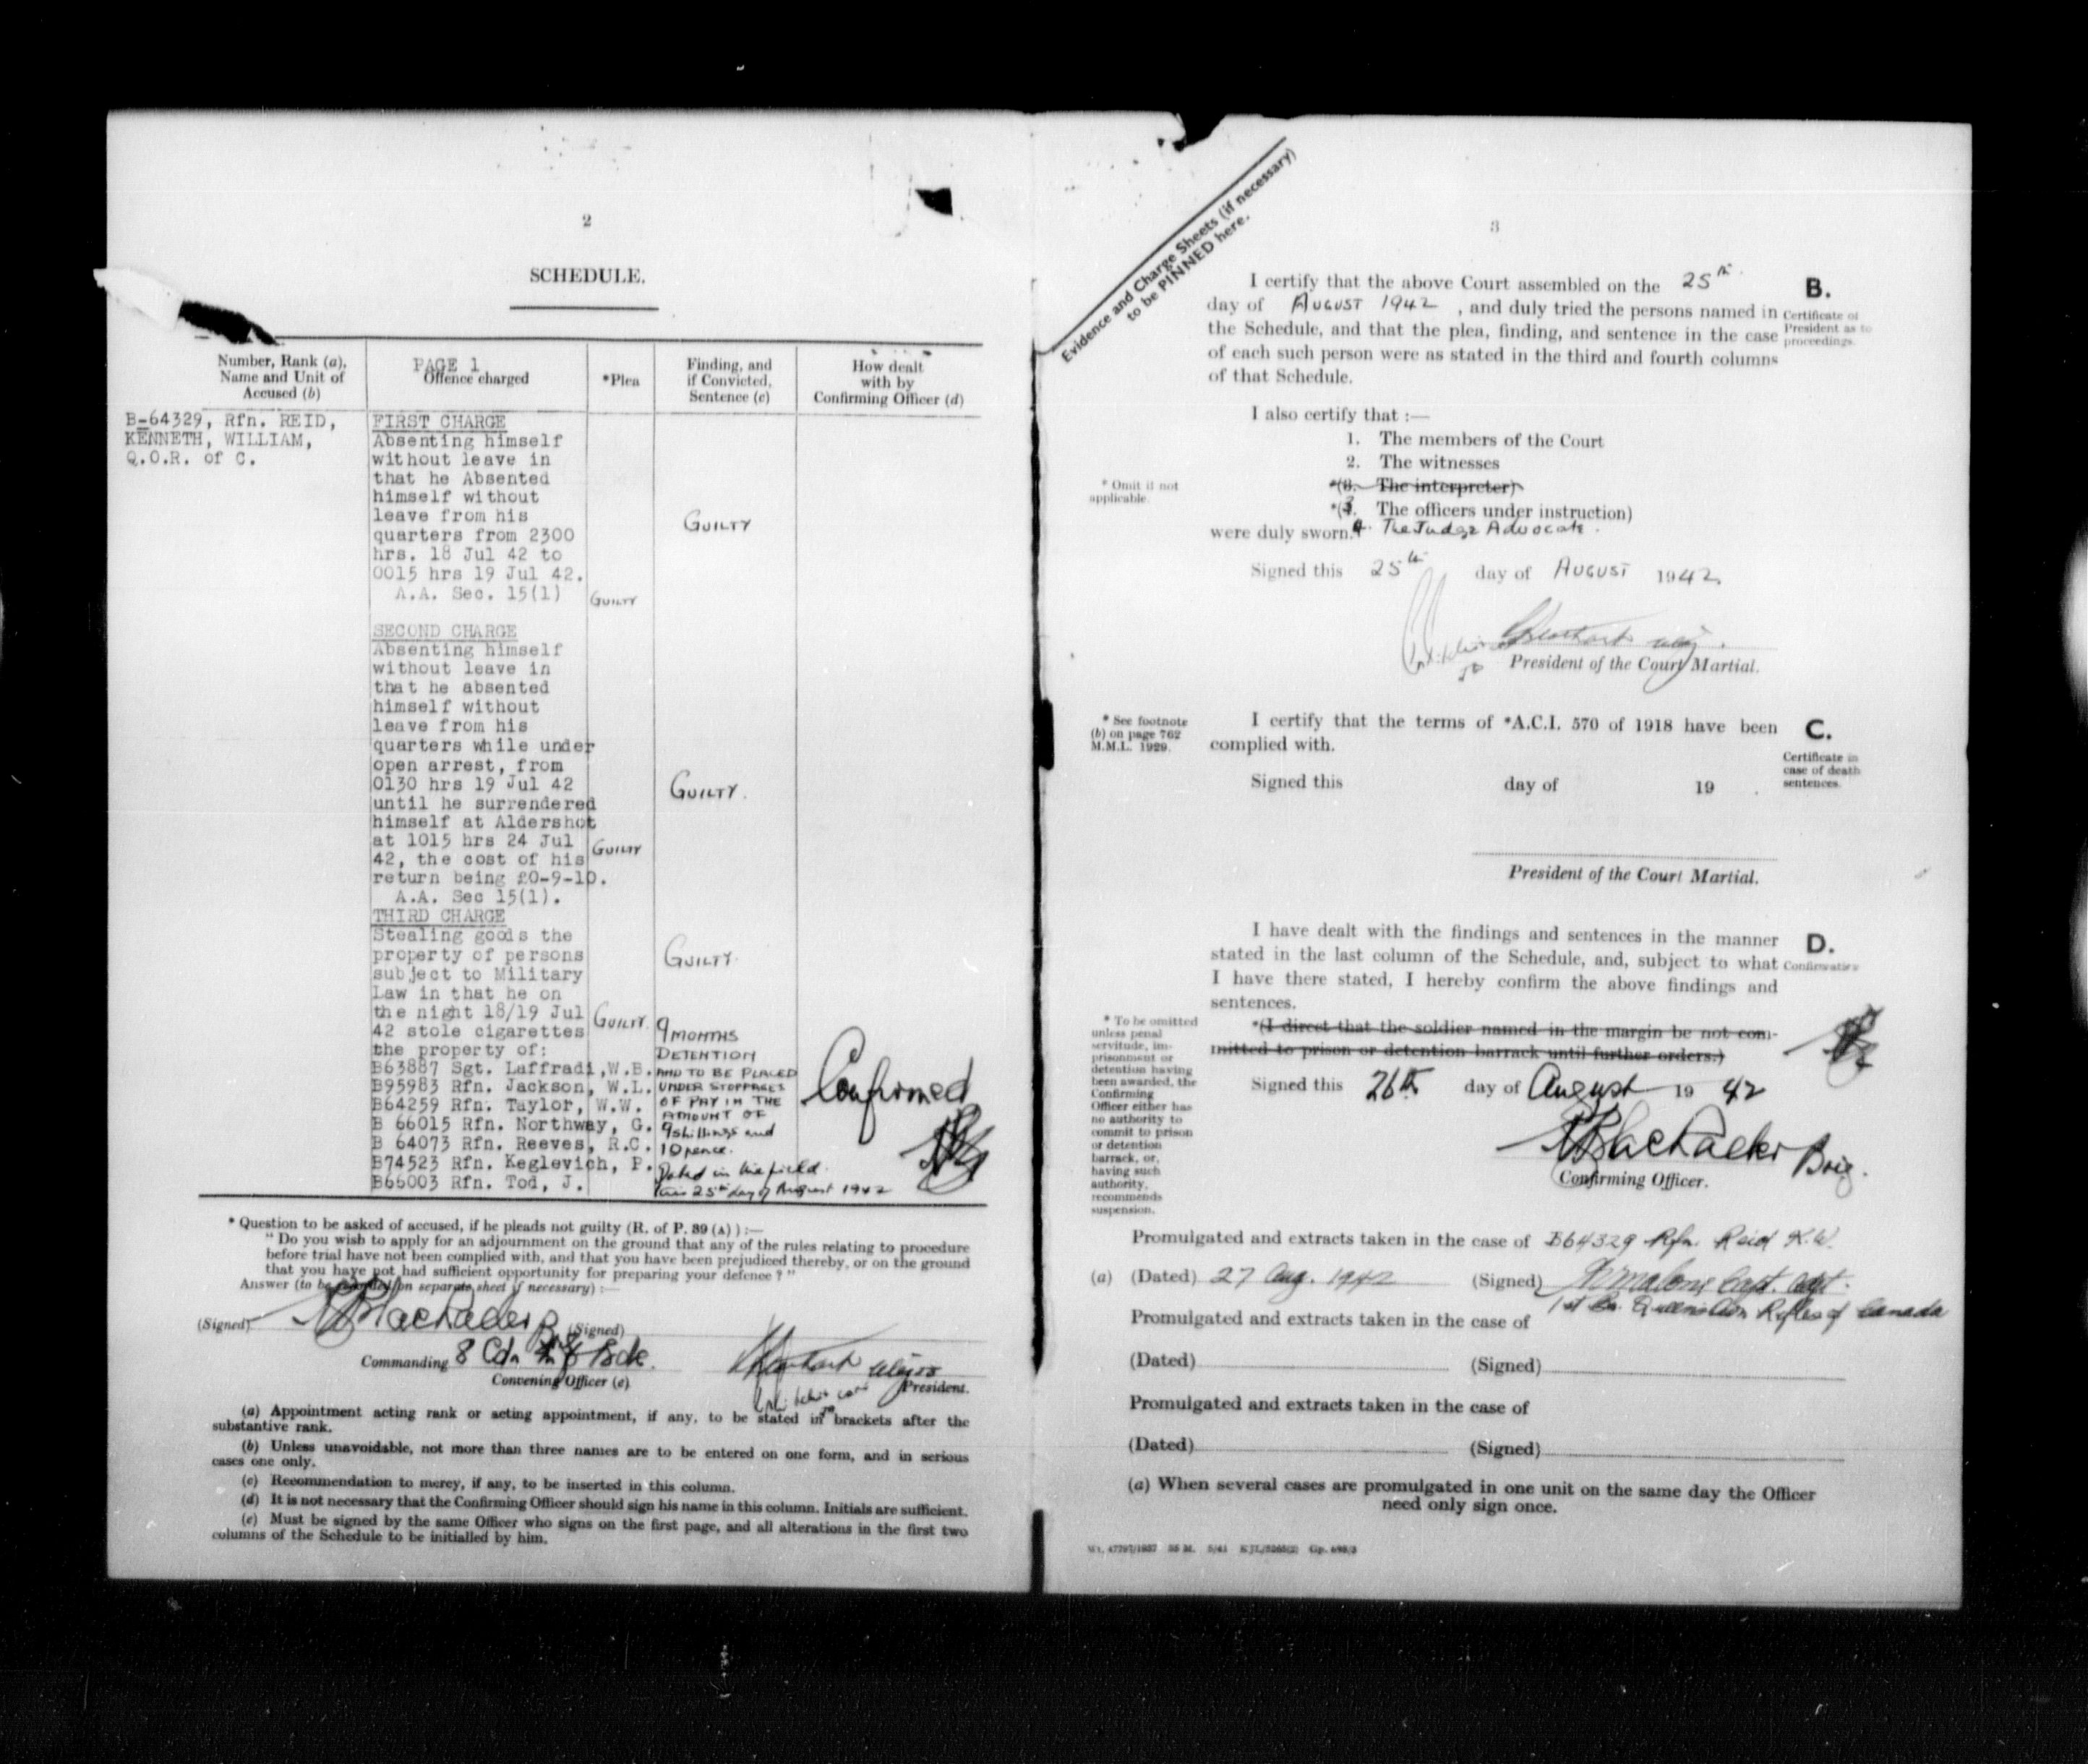 2
SCHEDULE.
Number, Rank (a),
Name and Unit of
Accused (b)
PAGE 1
Offence charged
*Plea
Finding, and
if Convicted,
Sentence (c)
How dealt
with by
Confirming Officer (d)
B-64329, Rfn. REID,
KENNETH, WILLIAM,
Q.O.R. of C.
FIRST CHARGE
Absenting himself
without leave in
that he Absented
himself without
leave from his
quarters from 2300
hrs. 18 Jul 42 to
0015 hrs 19 Jul 42.
A.A. Sec. 15(1)
GUILTY
GUILTY
SECOND CHARGE
Absenting himself
without leave in
that he absented
himself without
leave from his
quarters while under
open arrest, from
0130 hrs 19 Jul 42
until he surrendered
himself at Aldershot
at 1015 hrs 24 Jul
42, the cost of his
return being £0-9-10.
A.A. Sec 15(1).
GUILTY
GUILTY.
THIRD CHARGE
Stealing goods the
property of persons
subject to Military
Law in that he on
the night 18/19 Jul
42 stole cigarettes
the property of:
B63887 Sgt. Laffradi, W.B.
B95983 Rfn. Jackson, W.L.
B64259 Rfn. Taylor, W.W.
B 66015 Rfn. Northway, G.
B 64073 Rfn. Reeves, R.C.
B74523 Rfn. Keglevich, P.
B66003 Rfn. Tod, J.
GUILTY.
GUILTY.
9 MONTHS
DETENTION
AND TO BE PLACED
UNDER STOPPAGES
OF PAY IN THE
AMOUNT OF
9 shillings and
10 pence.
Dated in the field
this 25th day of August 1942
Confirmed
* Question to be asked of accused, if he pleads not guilty (R. of P. 39 (A) ) :—
" Do you wish to apply for an adjournment on the ground that any of the rules relating to procedure
before trial have not been complied with, and that you have been prejudiced thereby, or on the ground
that you have not had sufficient opportunity for preparing your defence ? "
Answer (to be recorded on separate sheet if necessary) :—
(Signed)
(Signed)
Commanding 8 Cdn Inf Bde.
Convening Officer (e)
Major
President.
(a) Appointment acting rank or acting appointment, if any, to be stated in brackets after the
substantive rank.
(b) Unless unavoidable, not more than three names are to be entered on one form, and in serious
cases one only.
(c) Recommendation to mercy, if any, to be inserted in this column.
(d) It is not necessary that the Confirming Officer should sign his name in this column. Initials are sufficient.
(e) Must be signed by the same Officer who signs on the first page, and all alterations in the first two
columns of the Schedule to be initialled by him.
3
Evidence and Charge Sheets (if necessary)
to be PINNED here.
I certify that the above Court assembled on the 25th
day of AUGUST 1942, and duly tried the persons named in
the Schedule, and that the plea, finding, and sentence in the case
of each such person were as stated in the third and fourth columns
of that Schedule.
B.
Certificate of
President as to
proceedings.
I also certify that :—
1. The members of the Court
2. The witnesses
*(3. The interpreter)
*(3. The officers under instruction)
were duly sworn. 4. The Judge Advocate.
* Omit if not
applicable.
Signed this 25th day of AUGUST 1942
President of the Court Martial.
* See footnote
(b) on page 762
M.M.L. 1929.
I certify that the terms of *A.C.I. 570 of 1918 have been
complied with.
C.
Certificate in
case of death
sentences.
Signed this day of 19 .
President of the Court Martial.
I have dealt with the findings and sentences in the manner
stated in the last column of the Schedule, and, subject to what
I have there stated, I hereby confirm the above findings and
sentences.
D.
Confirmation
*(I direct that the soldier named in the margin be not com-
mitted to prison or detention barrack until further orders.)
* To be omitted
unless penal
servitude, im-
prisonment or
detention having
been awarded, the
Confirming
Officer either has
no authority to
commit to prison
or detention
barrack, or,
having such
authority,
recommends
suspension.
Signed this 26th day of August 19 42
Brig.
Confirming Officer.
Promulgated and extracts taken in the case of B64329 Rfn. Reid K.W.
(a) (Dated) 27 Aug. 1942 (Signed) Capt. Adjt.
1st Bn. Queen's Own Rifles of Canada
Promulgated and extracts taken in the case of
(Dated) (Signed)
Promulgated and extracts taken in the case of
(Dated) (Signed)
(a) When several cases are promulgated in one unit on the same day the Officer
need only sign once.